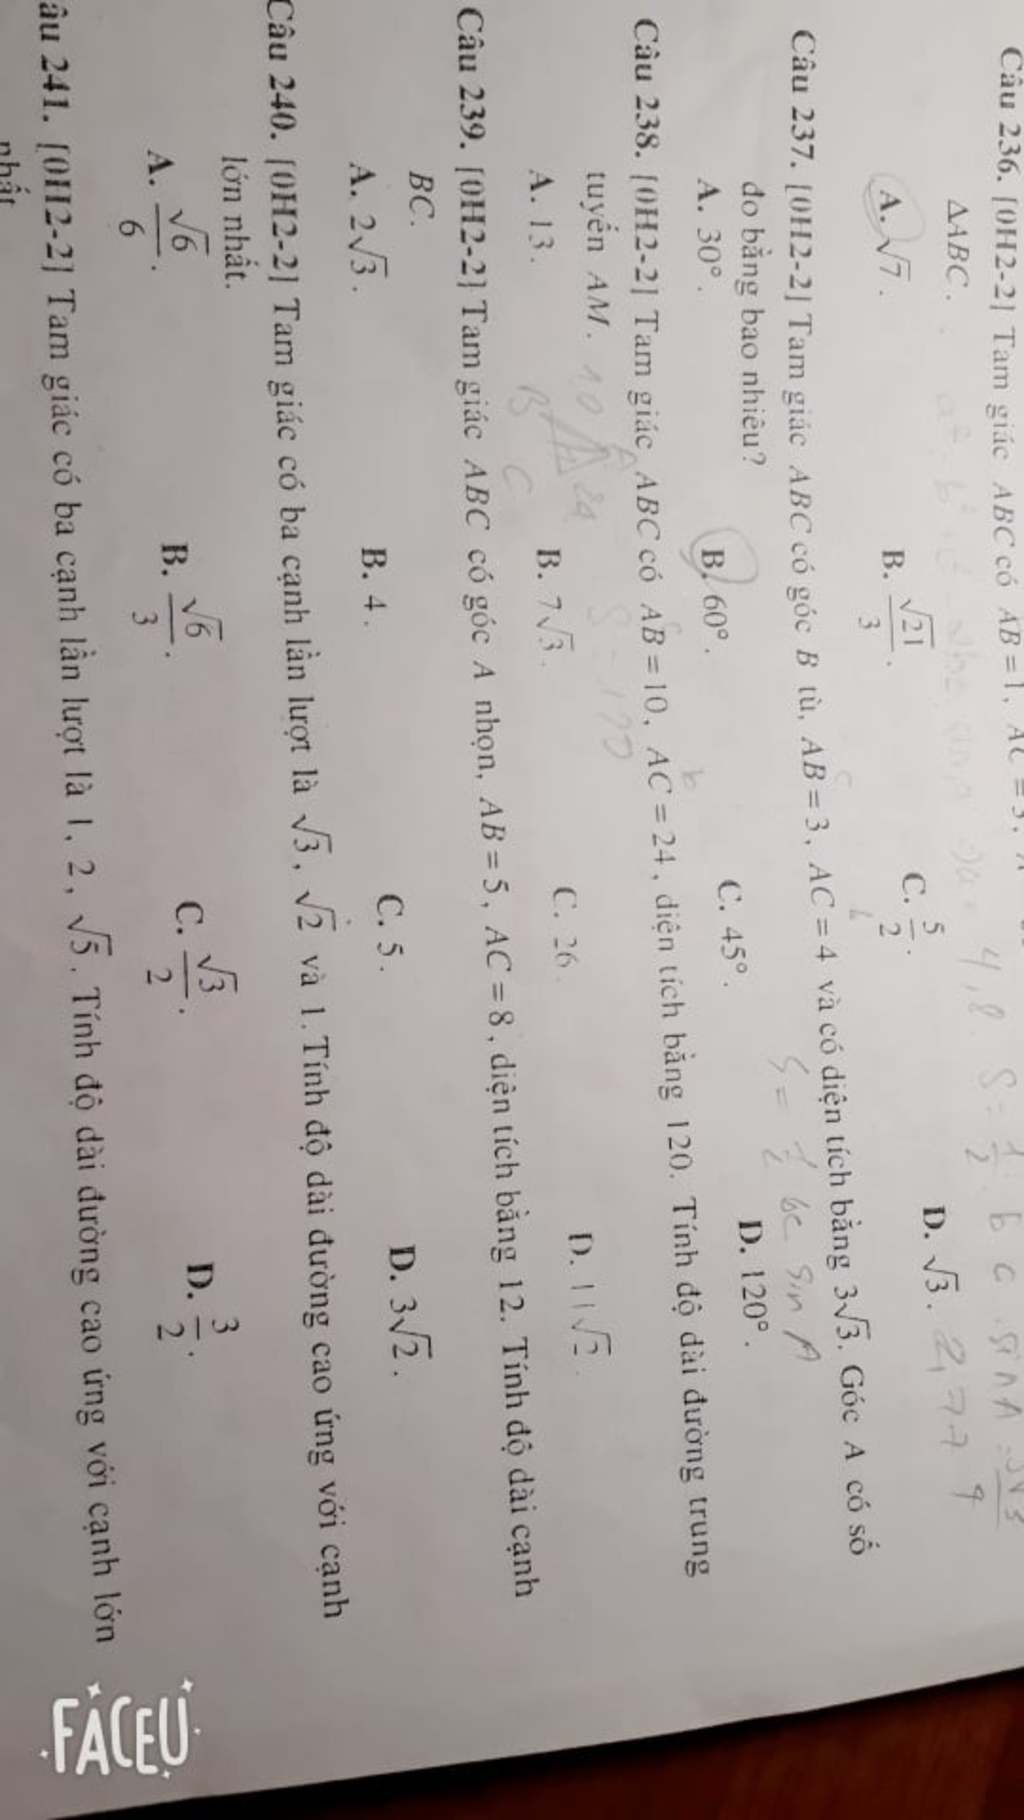 Câu 236. [0H2-2] Tam giác ABC có AB = 1, AC = 3,
ΔABC.
A. √7. B. √21/3. C. 5/2. D. √3.
Câu 237. [0H2-2] Tam giác ABC có góc B tù, AB = 3, AC = 4 và có diện tích bằng 3√3. Góc A có số
đo bằng bao nhiêu?
S = 1/2 bc sin A
A. 30°. B. 60°. C. 45°. D. 120°.
Câu 238. [0H2-2] Tam giác ABC có AB = 10, AC = 24, diện tích bằng 120. Tính độ dài đường trung
tuyến AM.
A. 13. B. 7√3. C. 26. D. 11√2.
Câu 239. [0H2-2] Tam giác ABC có góc A nhọn, AB = 5, AC = 8, diện tích bằng 12. Tính độ dài cạnh
BC.
A. 2√3. B. 4. C. 5. D. 3√2.
Câu 240. [0H2-2] Tam giác có ba cạnh lần lượt là √3, √2 và 1. Tính độ dài đường cao ứng với cạnh
lớn nhất.
A. √6/6. B. √6/3. C. √3/2. D. 3/2.
âu 241. [0H2-2] Tam giác có ba cạnh lần lượt là 1, 2, √5. Tính độ dài đường cao ứng với cạnh lớn
nhất
FACEU